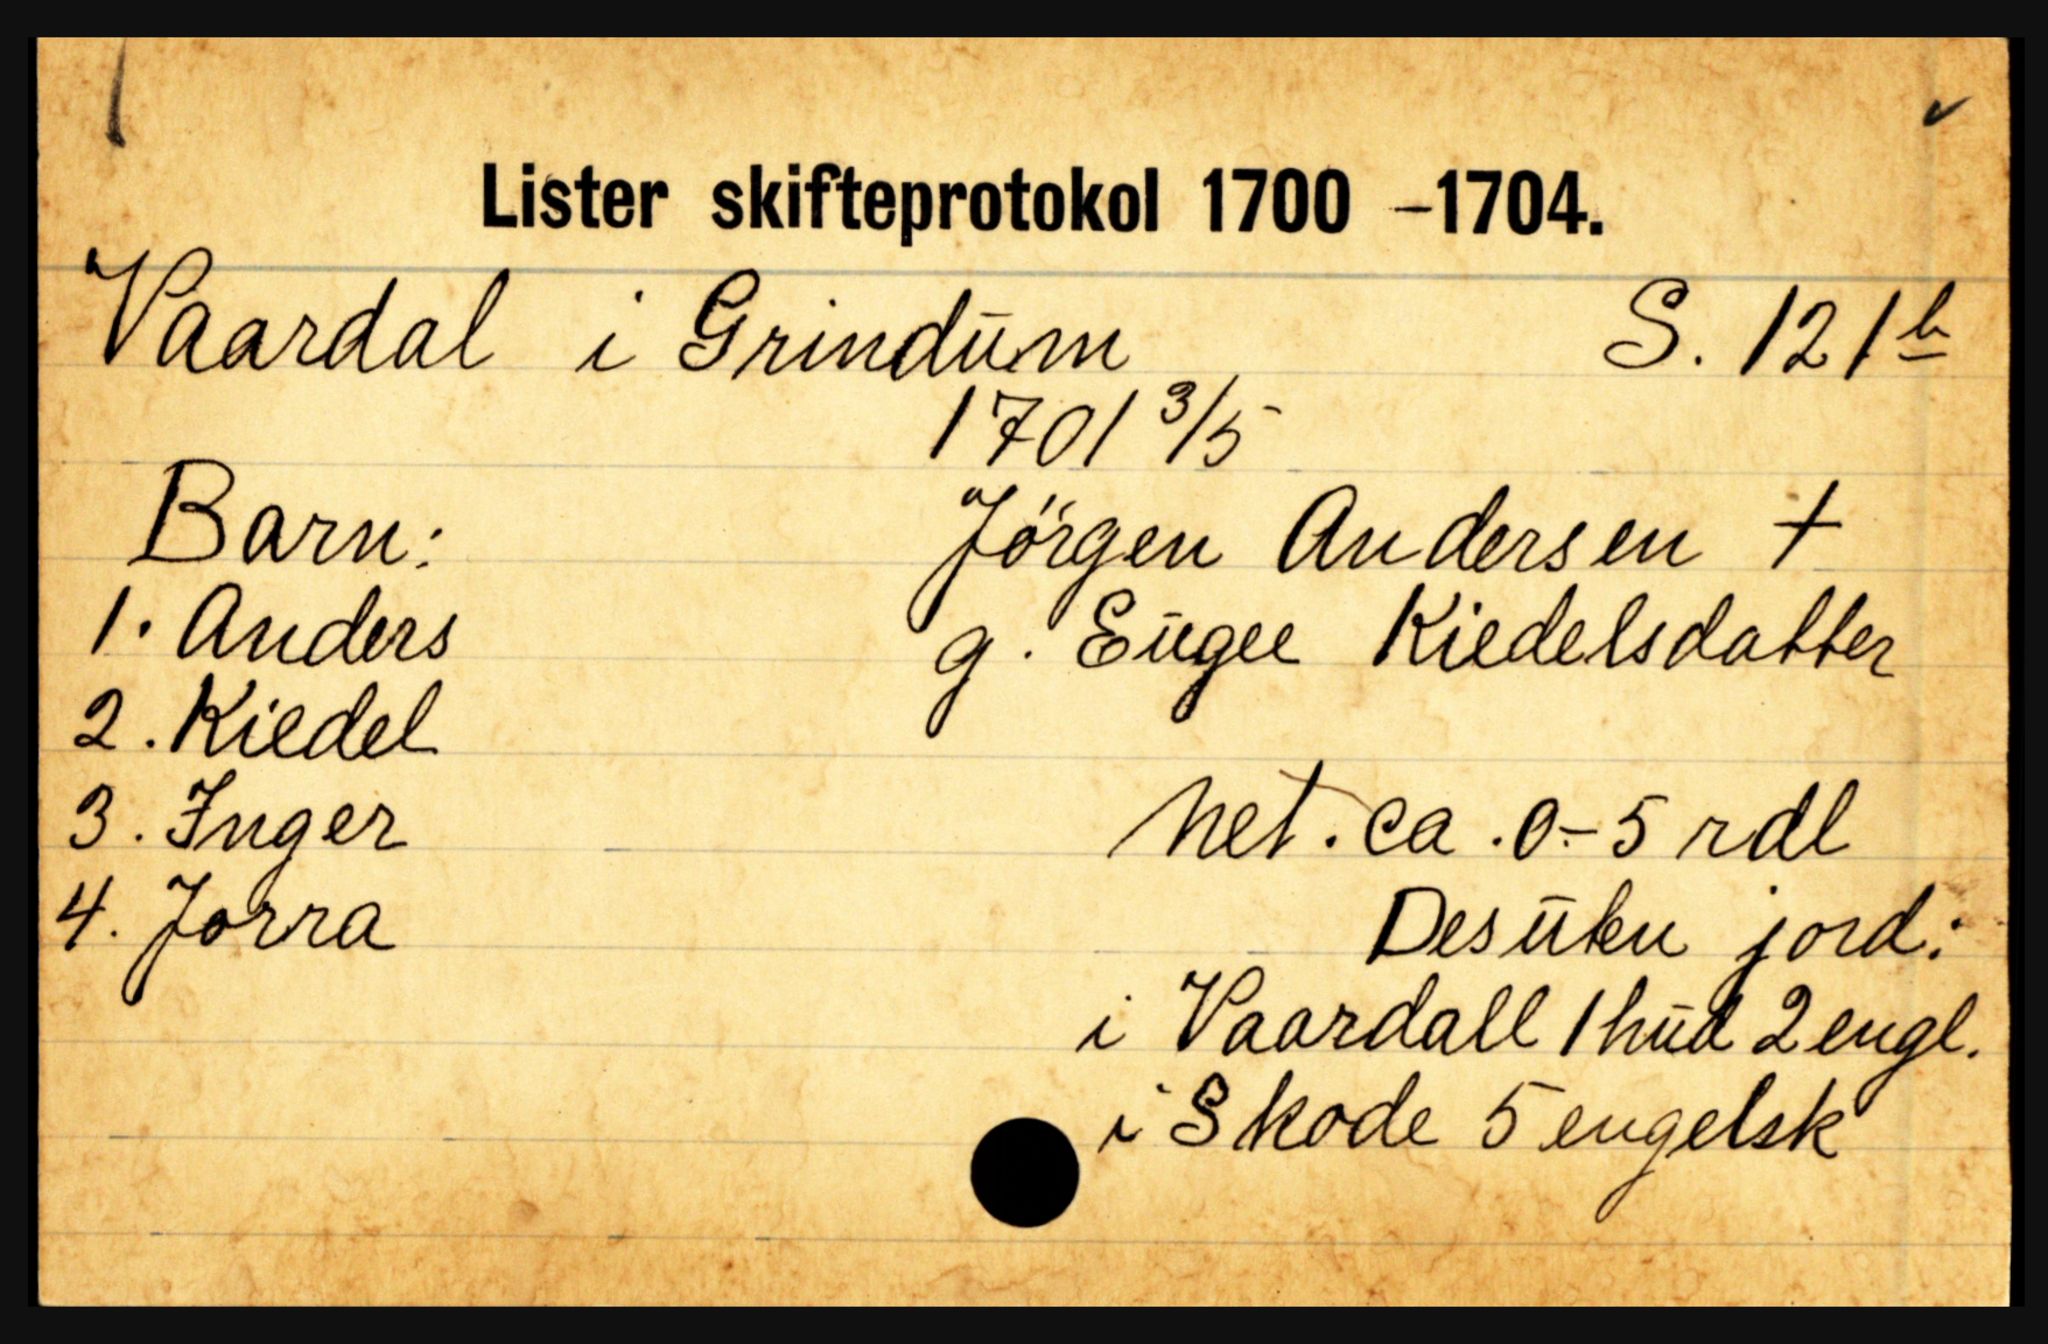 Lister skifteprotokol 1700 – 1704.
Vaardal i Grindum S. 121 b
1701 3/5
Barn: Jörgen Andersen †
1. Anders g. Eugee Kiedelsdatter
2. Kiedel
3. Inger net. ca. 0.- 5 rdl
4. Jorra Desuten jord:
i Vaardall 1 hud 2 engl.
i Skode 5 engelsk